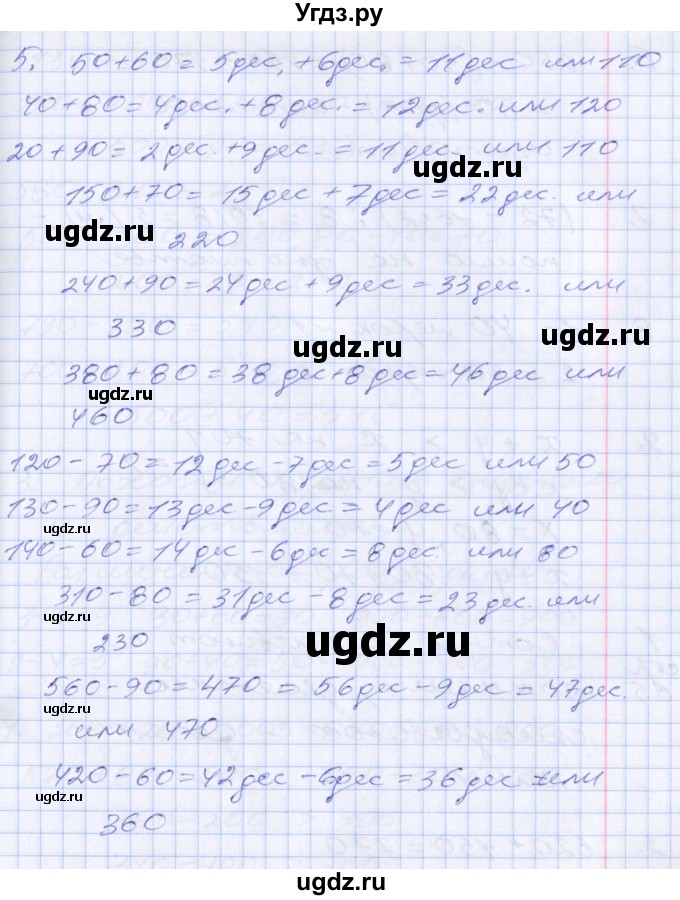 Угдз.ру
5. 50+60 = 5дес. +6дес. = 11дес или 110
40+80=4дес.+8дес. = 12дес. или 120
20+90= 2дес.+9дес. = 11дес. или 110
ugdz.ru
150+70= 15дес+7дес=22дес. или
ugdz.ru ugdz.ru
220
240+90=24дес+9дес=33дес. или
330
ugdz.ru ugdz.ru
380+80=38дес+8дес=46дес или
ugdz.ru
460
120-70=12дес-7дес=5дес или 50
130-90=13дес-9дес=4дес или 40
ugdz.ru
140-60=14дес-6дес=8дес. или 80
310-80=31дес-8дес=23дес. или
ugdz.ru
230
ugdz.ru
560-90=470 = 56дес-9дес = 47дес.
или 470
420-60=42дес-6дес=36дес или
ugdz.ru ugdz.ru
360
ugdz.ru